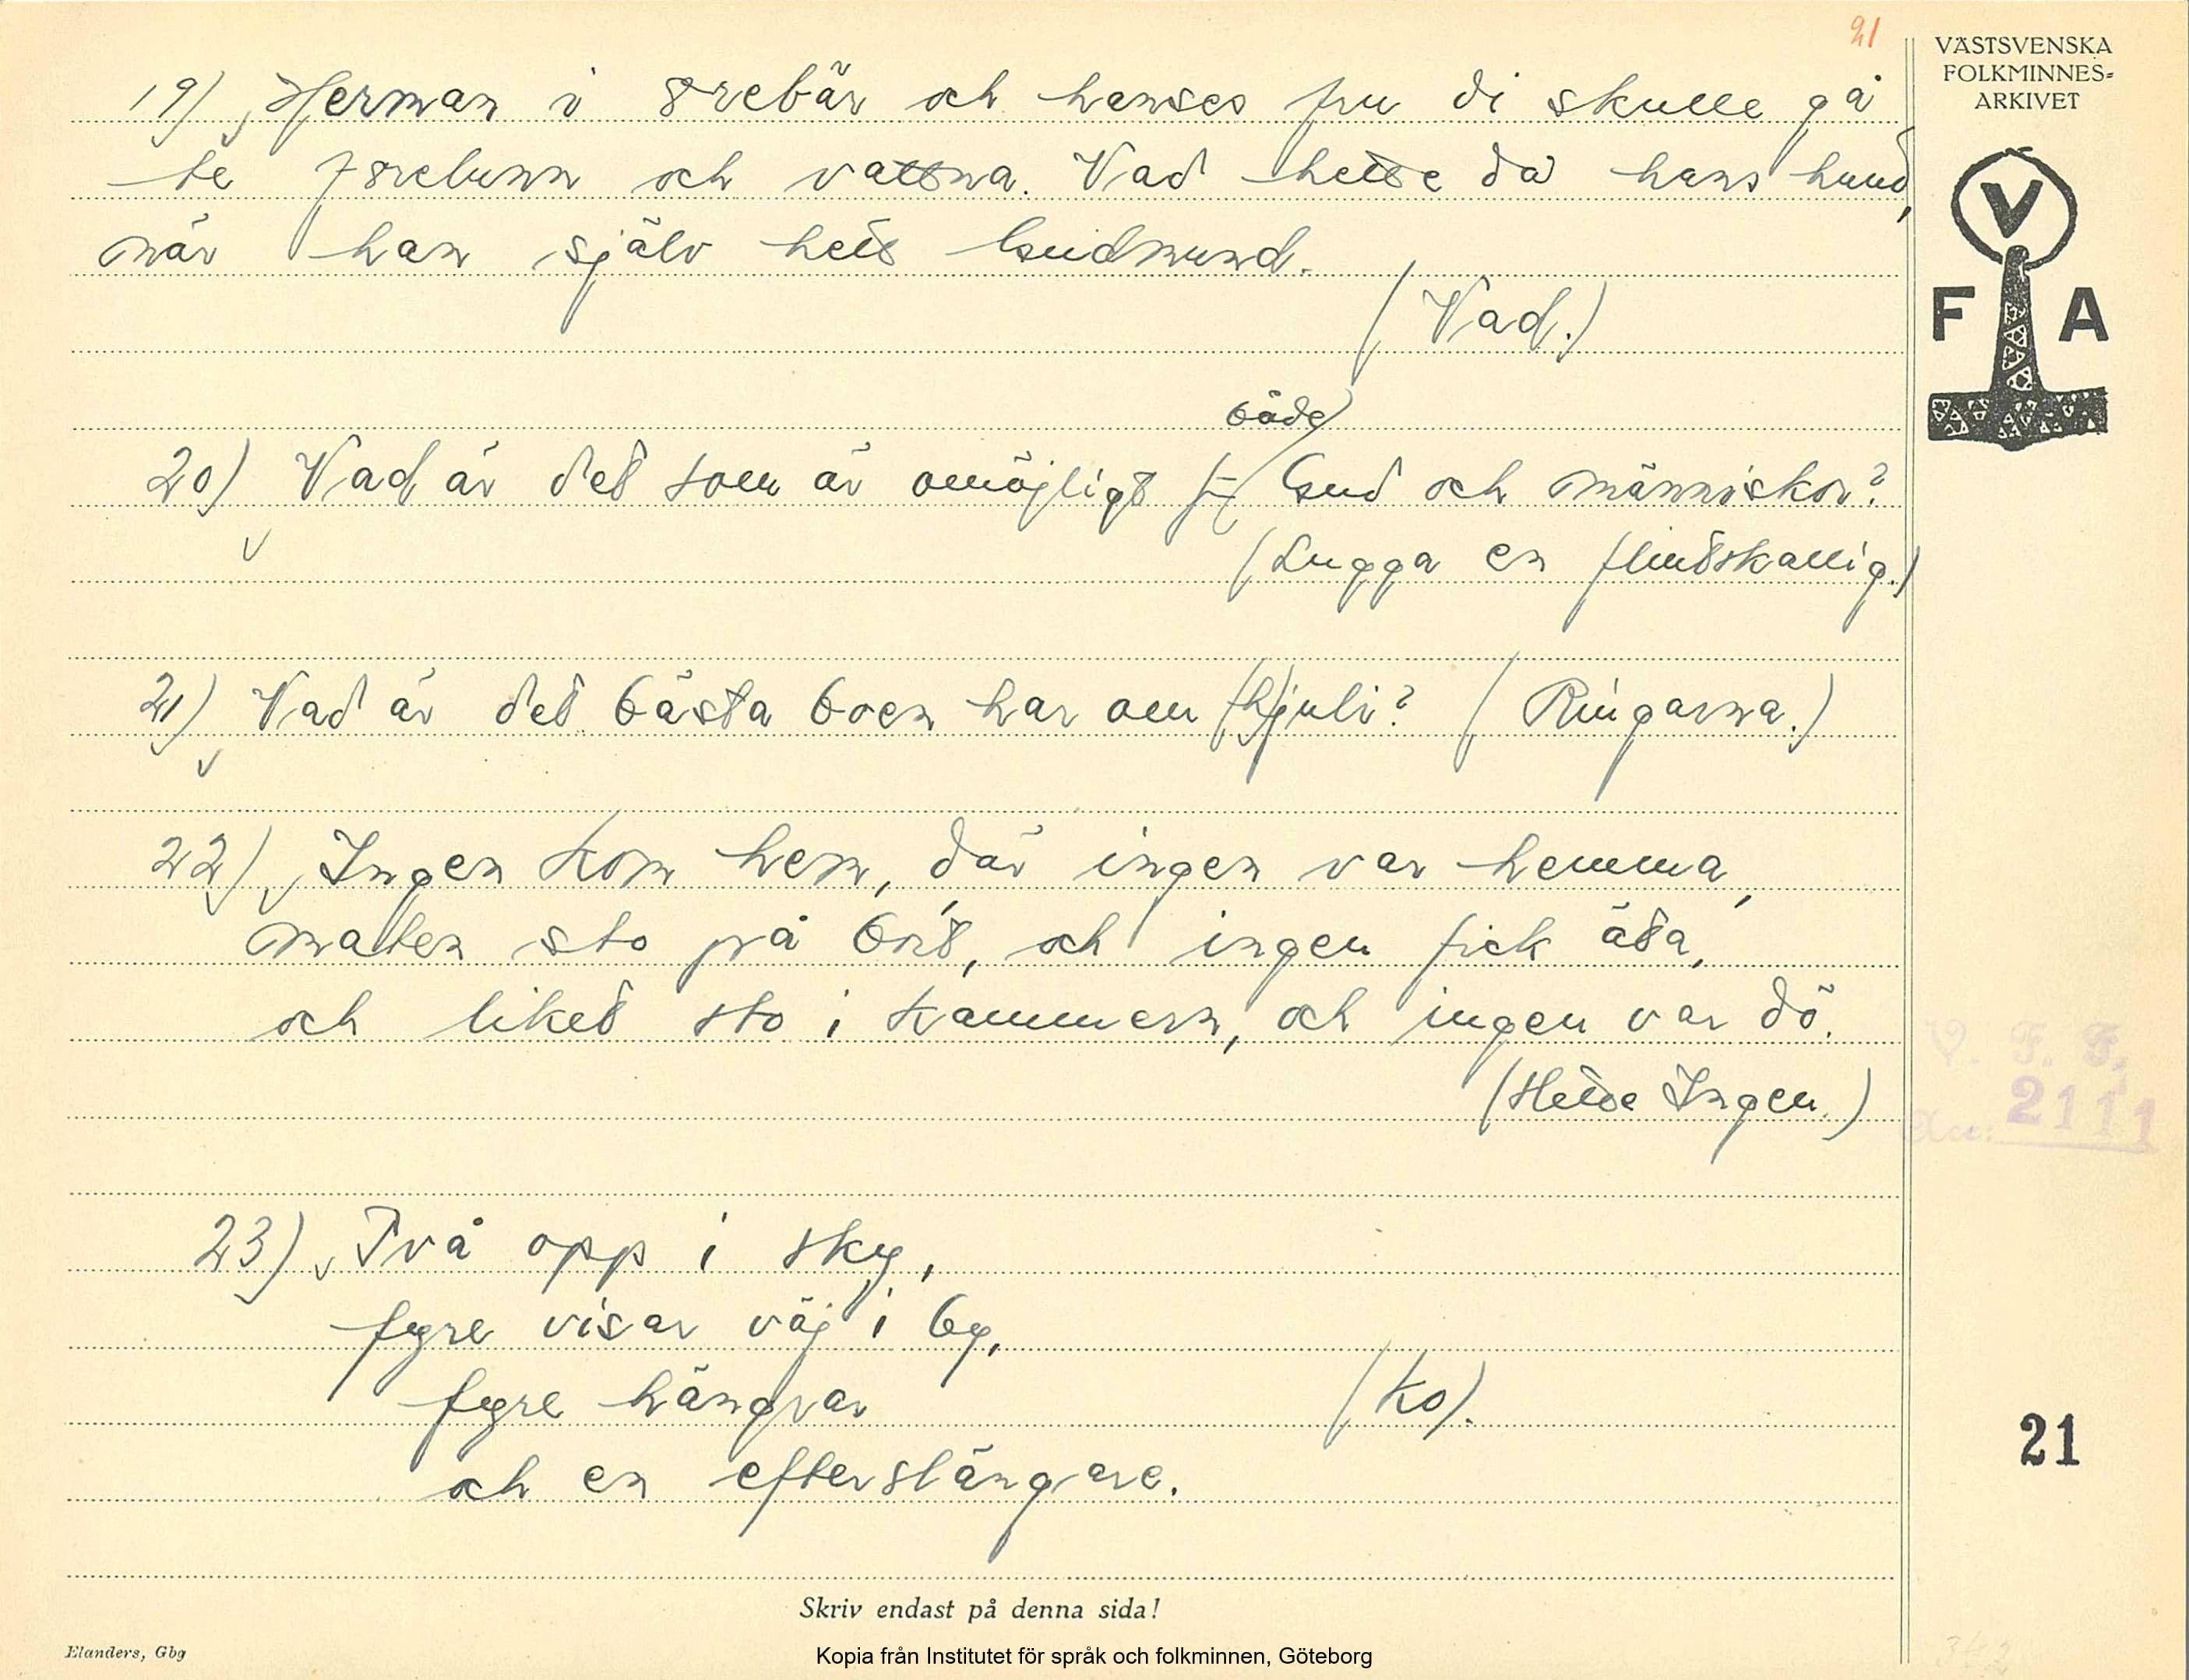 21
VÄSTSVENSKA
FOLKMINNES-
ARKIVET
V
F A
19) Herman i Örebär och hanses fru di skulle gå
te Förelunn och vattna. Vad hette då hans hund,
när han själv hett Gudmund.
(Vad.)
både
20) Vad är det som är omöjligt för Gud och människor?
(Lugga en flintskallig.)
21) Vad är det bästa boen har om (h)juli? (Ringarna.)
22) Ingen kom hem, där ingen var hemma,
maten sto på bort, och ingen fick äta,
och liket sto i kammern, och ingen var dö.
(Hette Ingen.)
23) Två opp i sky,
fyre visar väj i by,
fyre hängvar (Ko).
och en efterslängare.
V. F. F.
2111
21
Skriv endast på denna sida!
Elanders, Gbg
Kopia från Institutet för språk och folkminnen, Göteborg